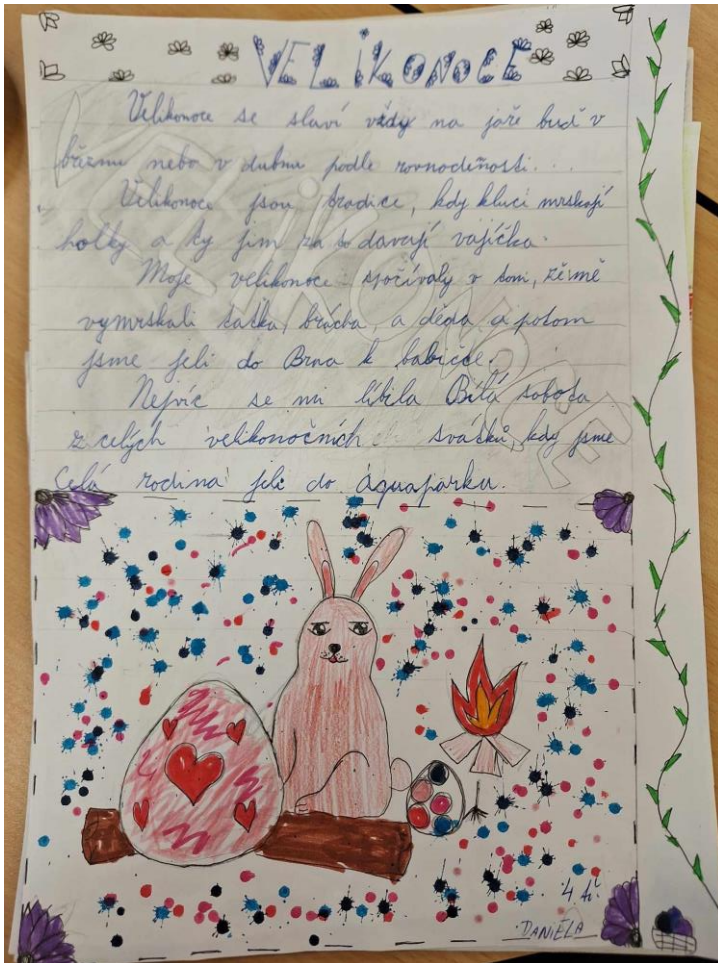 VELIKONOCE
Velikonoce se slaví vždy na jaře buď v
březnu nebo v dubnu podle rovnodeňosti...
Velikonoce jsou tradice, kdy kluci mrskají
holky a ty jim za to davají vajíčka.
Moje velikonoce spočívaly v tom, že mě
vymrskali taťka, brácha, a děda a potom
jsme jeli do Brna k babičce.
Nejvíc se mi líbila Bílá sobota
z celých velikonočních svátků, kdy jsme
celá rodina jeli do aquaparku.
DANIELA